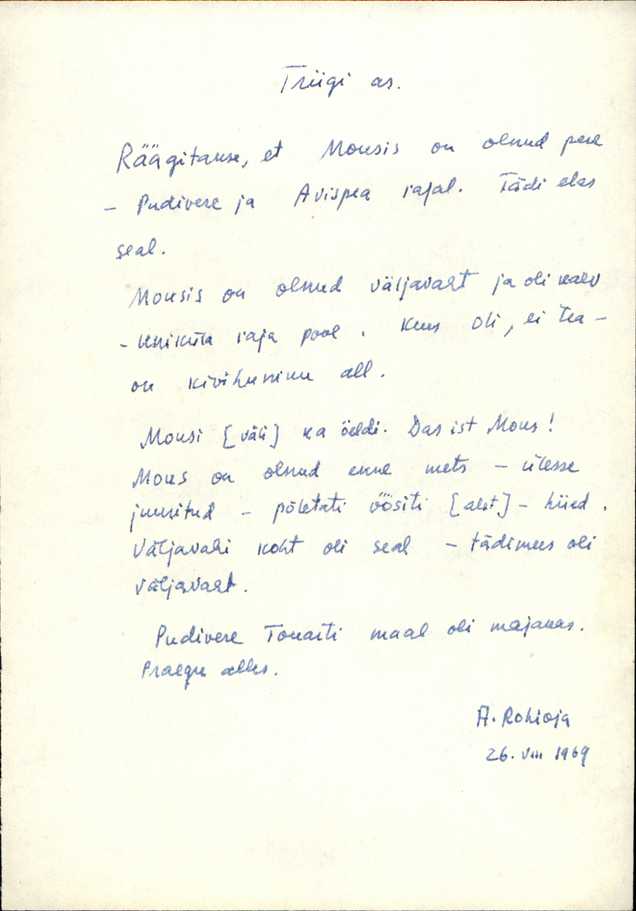 Triigi as.
Räägitakse, et Mousis on olnud pere
- Pudivere ja Avispea rajal. Tädi elas
seal.
Mousis on olnud väljavaht ja oli
raja pool. Kus oli, ei tea -
on kivihunnik all.
Mousi [väli] ka öeldi. Das ist Mous!
Mous on olnud enne mets - ülesse
juuritud - põletati öösiti [alet] - hiied.
Väljavahi koht oli seal - tädimees oli
väljavaht.
Pudivere maal oli majakas.
Praegu alles.
A. Rohioja
26. VIII 1969